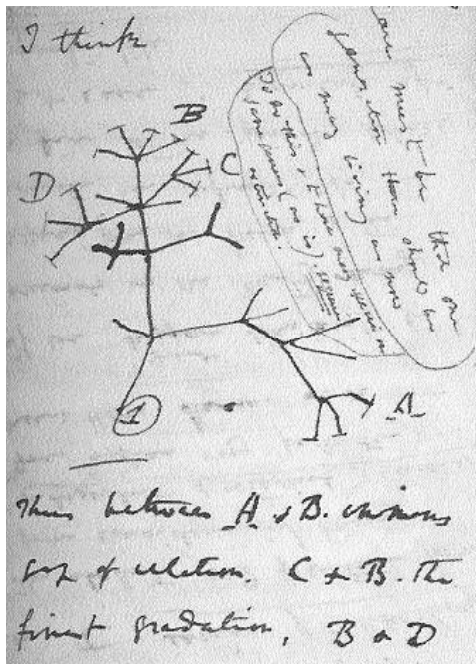 I think
must be that one
generation then should be
as many living as now
To do this & to have many species in
same genus (as is) requires
extinction.
B
C
D
A
1
Thus between A & B. immense
gap of relation. C & B. the
finest gradation, B & D